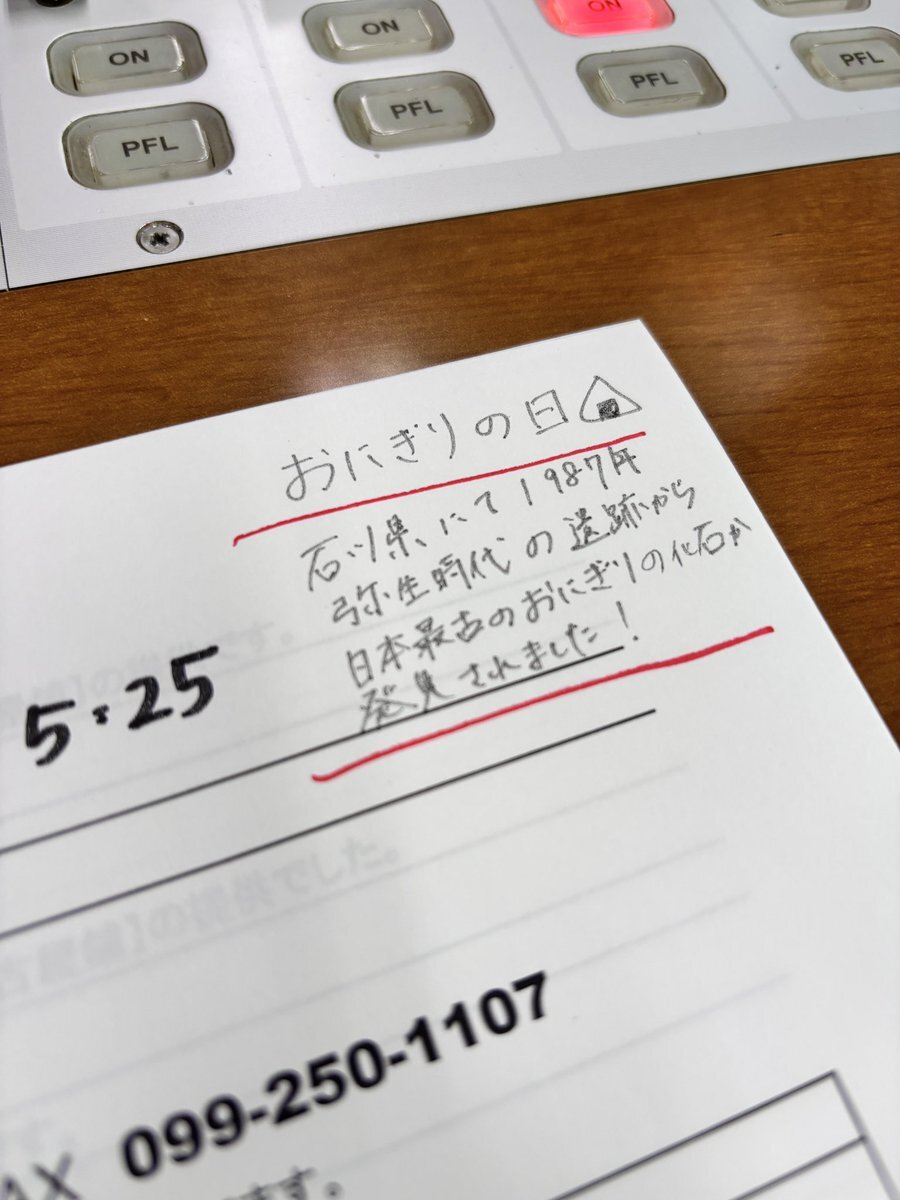 ON
ON
ON
PFL
PFL
PFL
PFL
おにぎりの日
石川県にて1987年
弥生時代の遺跡から
日本最古のおにぎりの化石が
発見されました!
5:25
です。
の提供でした。
099-250-1107
AX
ます。